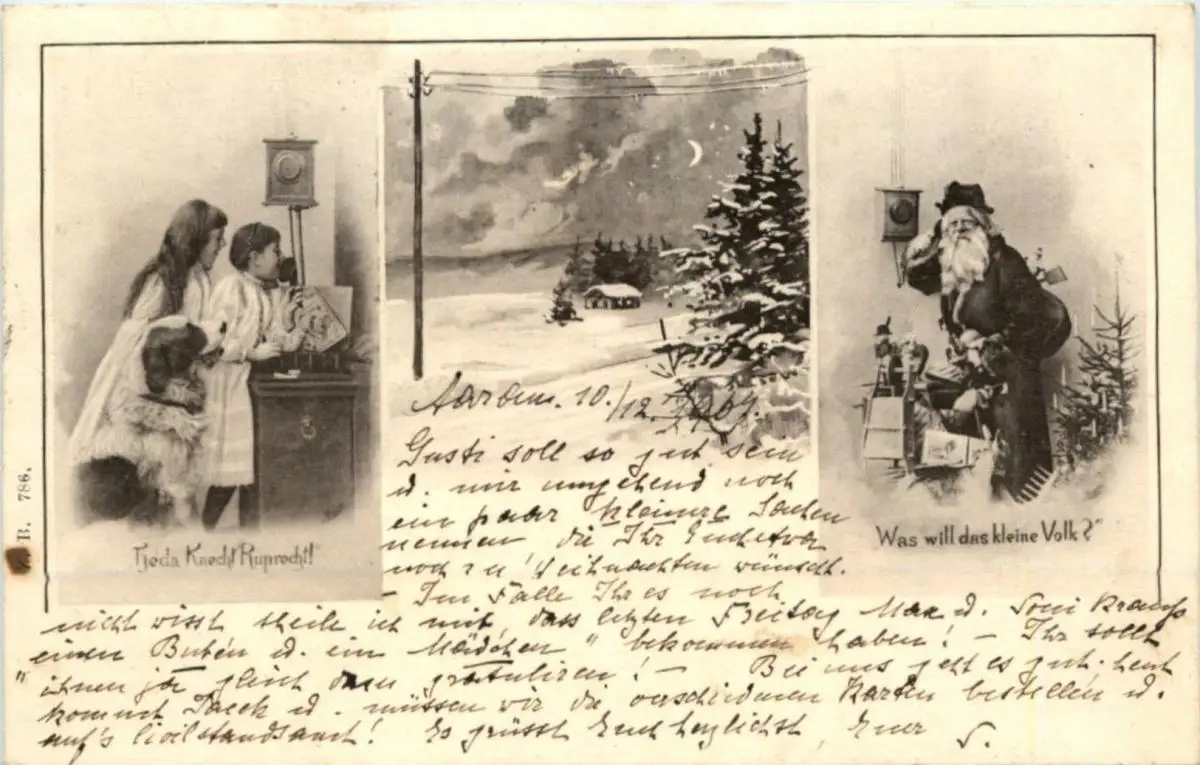 Heda Knecht Ruprecht!
Was will das kleine Volk?"
B. 786.
10./12.
Gusti soll so gut sein
u. mir umgehend noch
ein paar kleinere Sachen
nennen die Ihr Euch
noch zu Weihnachten wünscht.
– Im Falle Ihr es noch
nicht wisst theile ich mit, dass letzten Freitag Max u.
einen Buben u. ein Mädchen " bekommen haben! – Ihr sollt
" ihnen ja gleich gratulieren! – Bei uns geht es gut. heut
kommt u. müssen wir die verschiedenen Karten bestellen u.
auf's Civilstandsamt! Es grüsst Euch herzlichst, Euer
S.